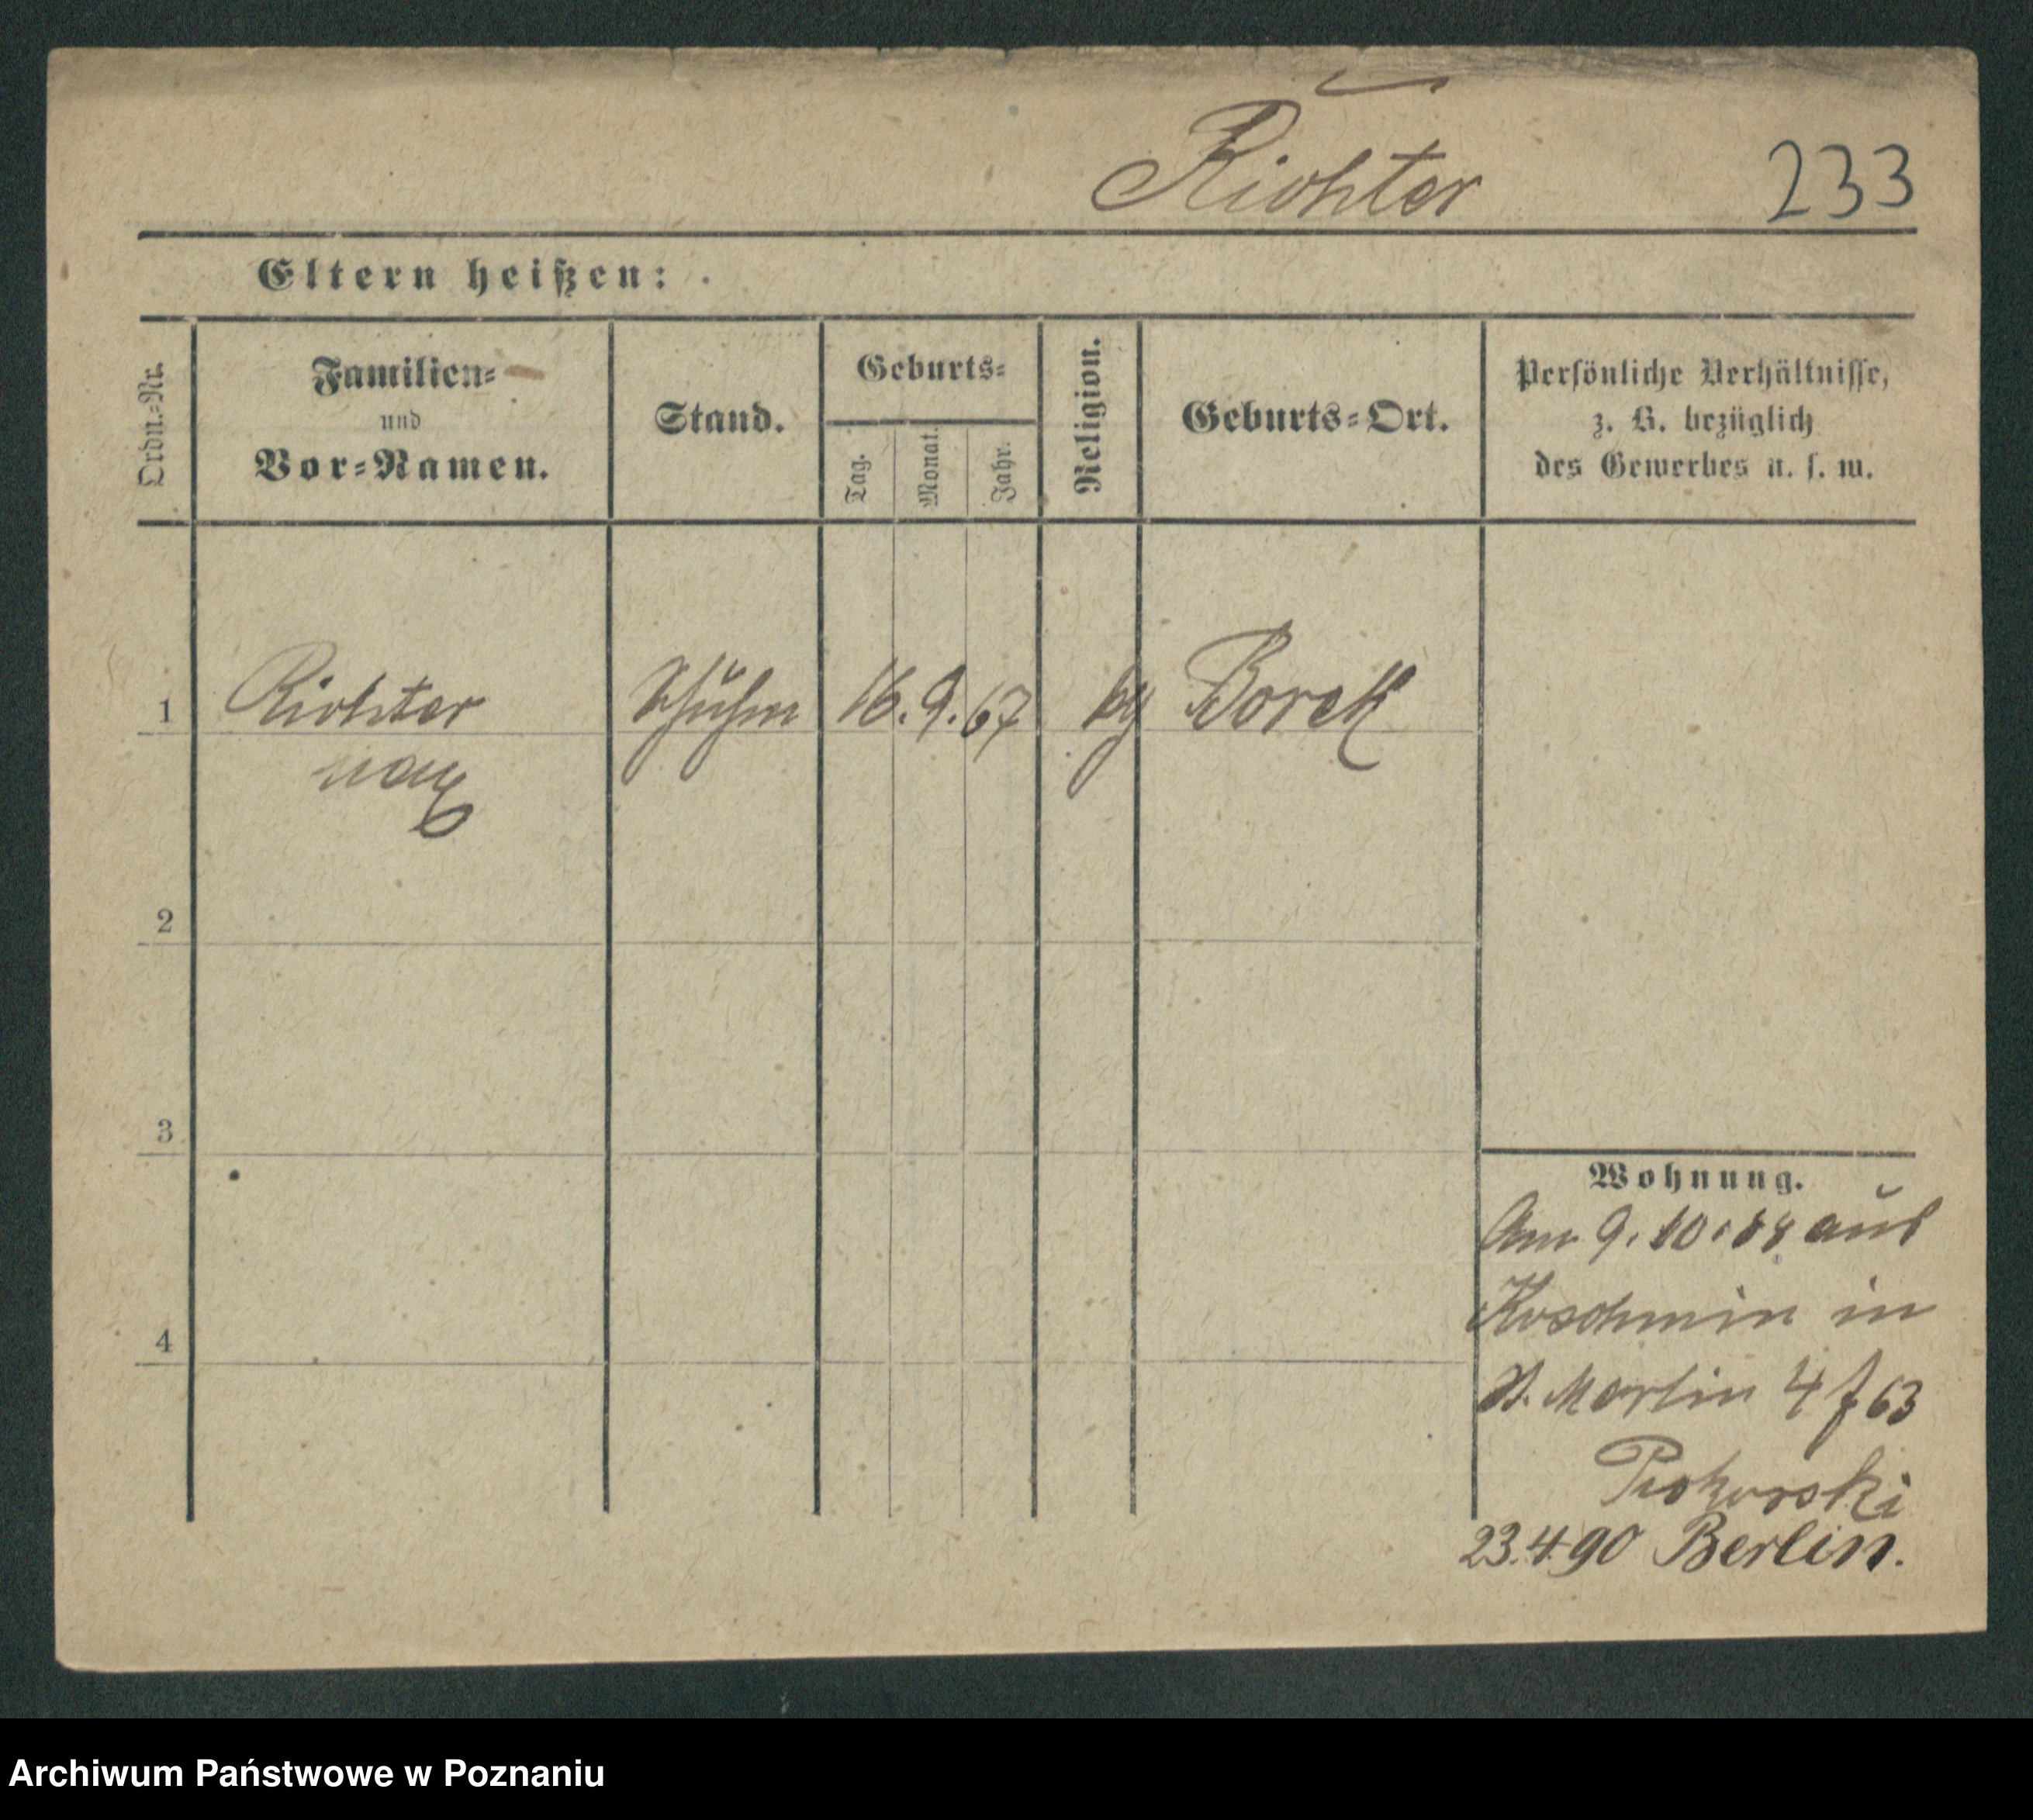 Richter 233
Eltern heißen:
Ordn.-Nr.
Familien-
und
Vor-Namen.
Stand.
Geburts-
Tag.
Monat.
Jahr.
Religion.
Geburts-Ort.
Persönliche Verhältnisse,
z. B. bezüglich
des Gewerbes u. s. w.
1 Richter Schuhm 16. 9. 67 Borek
Max
2
3
4
Wohnung.
Am 9. 10. 88 aus
Koschmin in
St. Martin 4 f 63
23.4.90 Berlin.
Archiwum Państwowe w Poznaniu